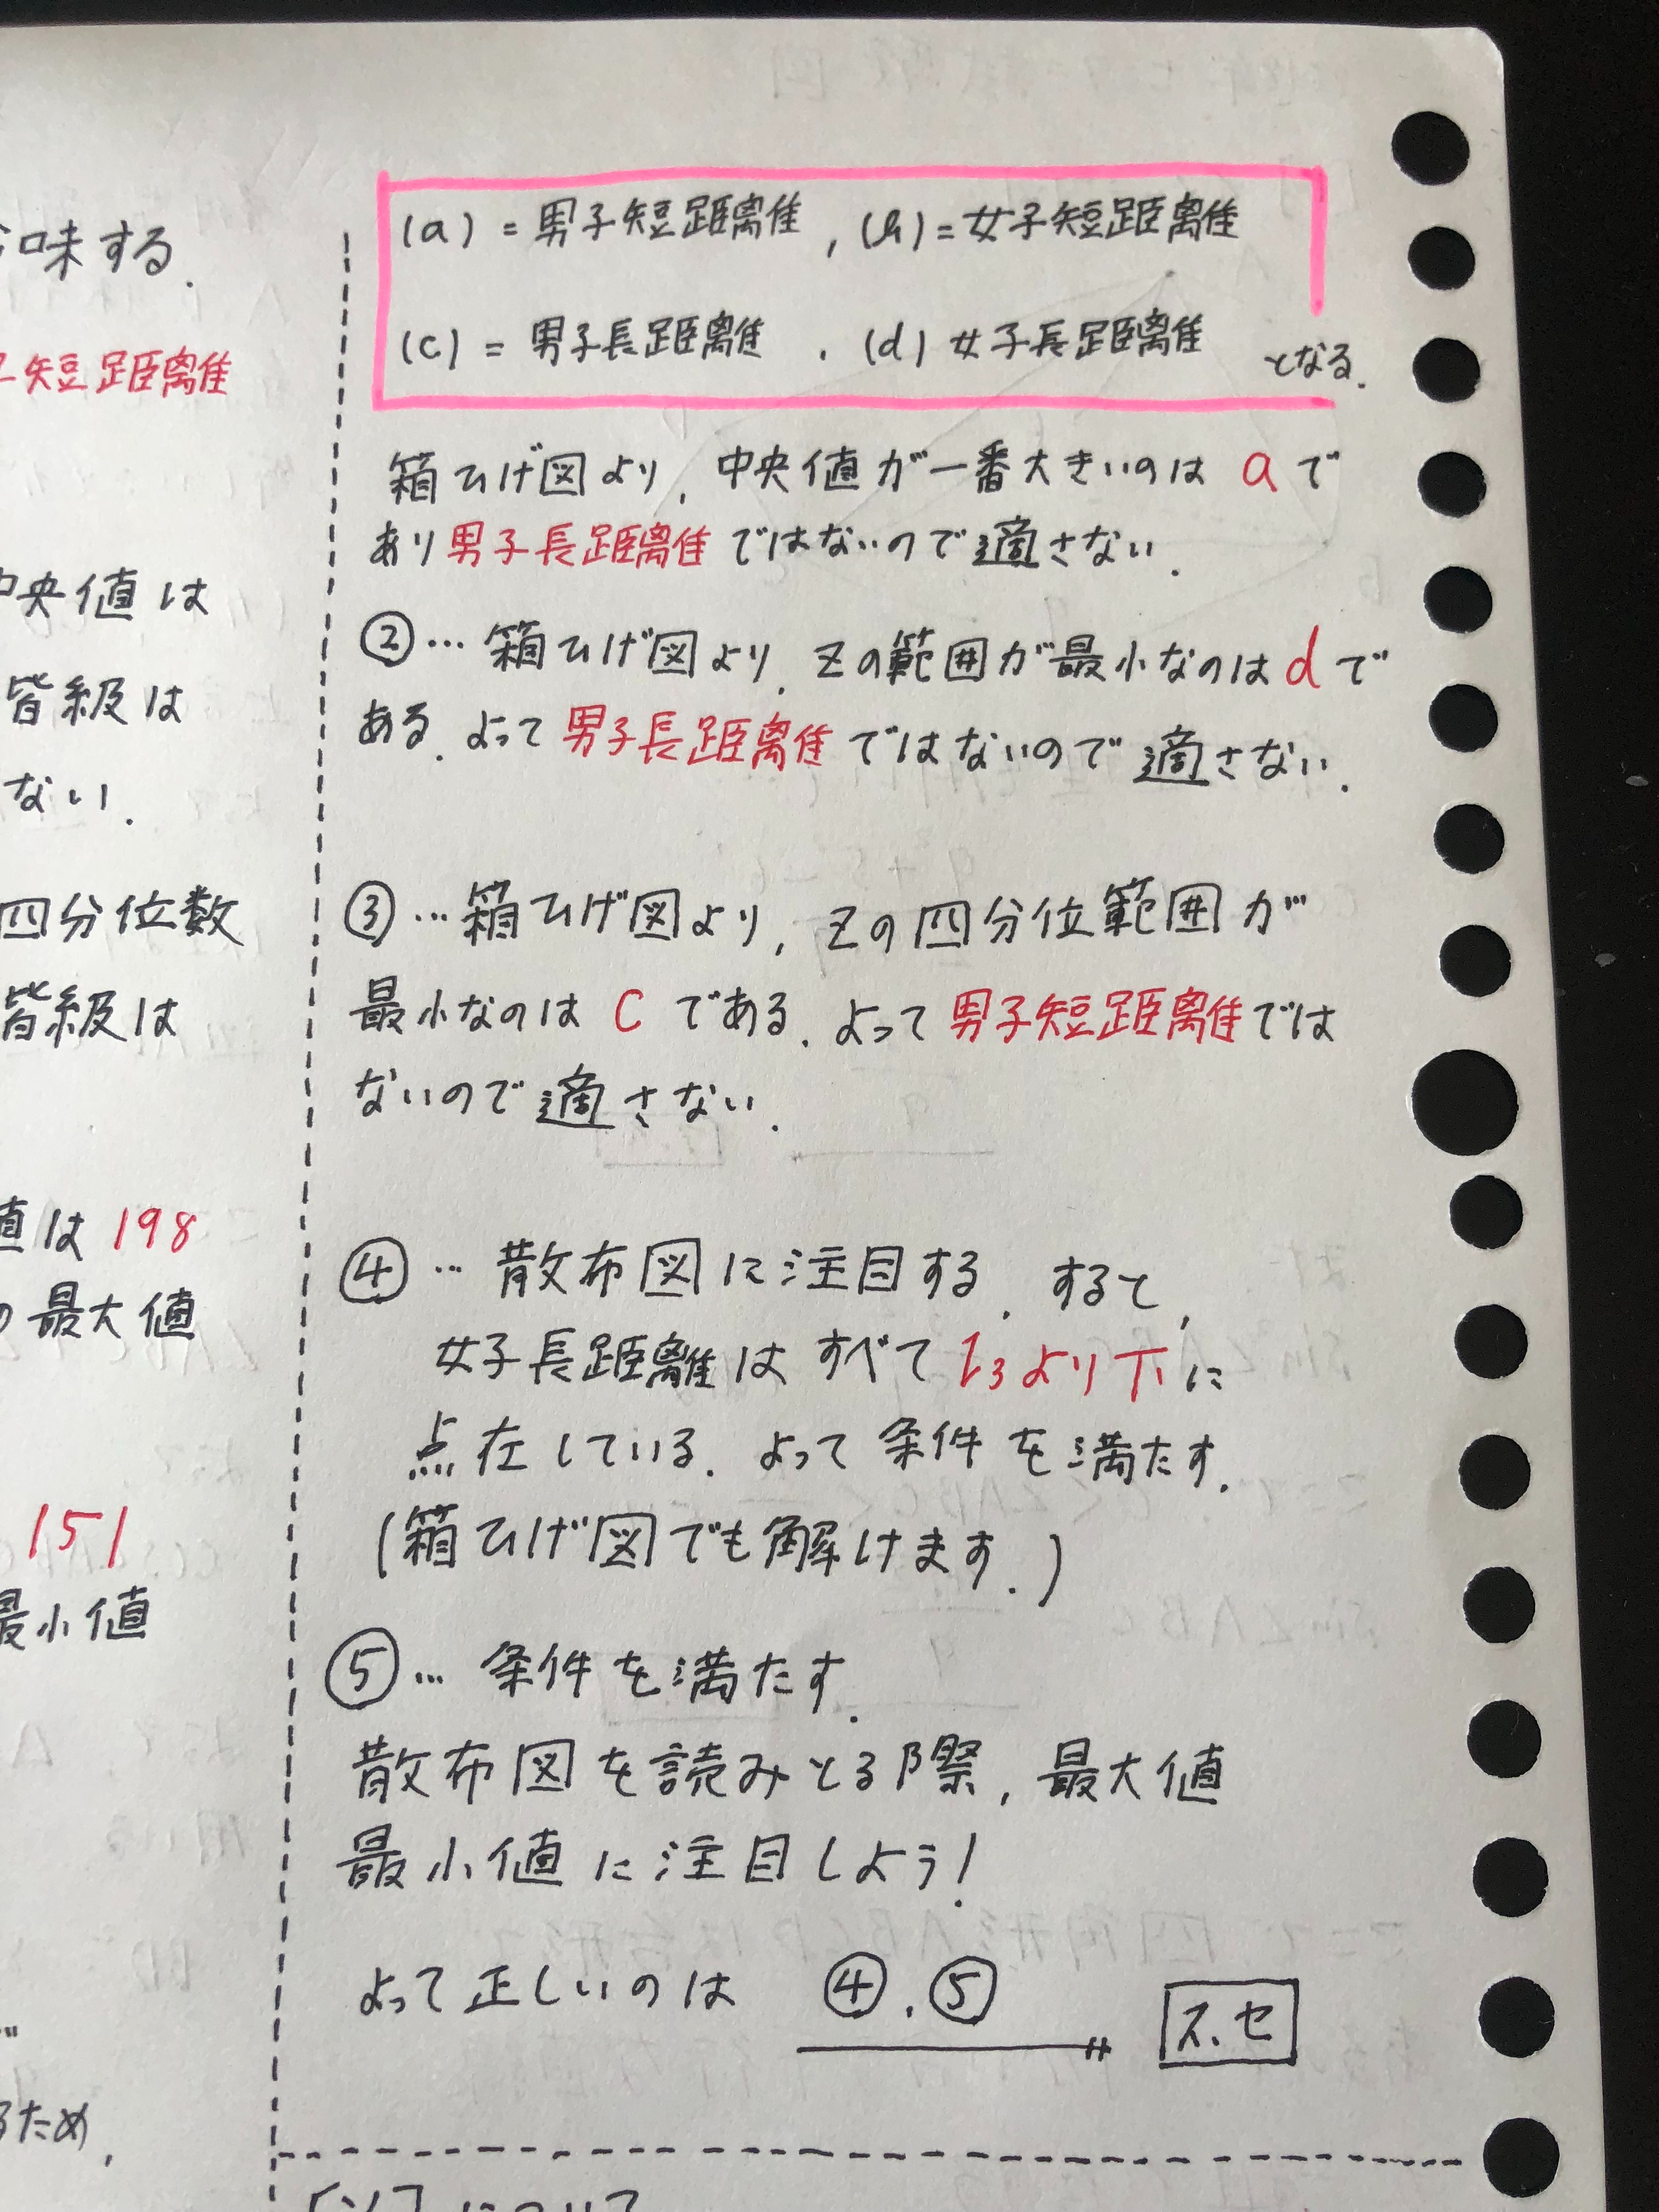 味する.
短距離
中央値は
階級は
ない.
四分位数
階級は
値は 198
の最大値
151
最小値
るため,
(a) = 男子短距離, (b) = 女子短距離
(c) = 男子長距離, (d) 女子長距離 となる.
箱ひげ図より, 中央値が一番大きいのは a で
あり男子長距離ではないので適さない.
②… 箱ひげ図より, Zの範囲が最小なのは d で
ある. よって男子長距離ではないので適さない.
③…箱ひげ図より, Zの四分位範囲が
最小なのは C である. よって男子短距離では
ないので適さない.
④… 散布図に注目する. すると,
女子長距離はすべて l₃より下に
点在している. よって条件を満たす.
(箱ひげ図でも解けます.)
⑤… 条件を満たす.
散布図を読みとる際, 最大値
最小値に注目しよう!
よって正しいのは ④, ⑤ ス.セ
[ソ] について